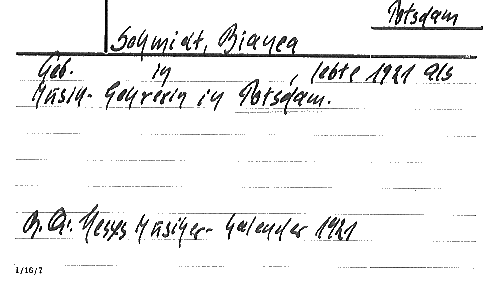 Potsdam
Schmidt, Bianca
Geb. in , lebte 1921 als
Musik-Lehrerin in Potsdam.
Hesses Musiker-Kalender 1921
1/16/7